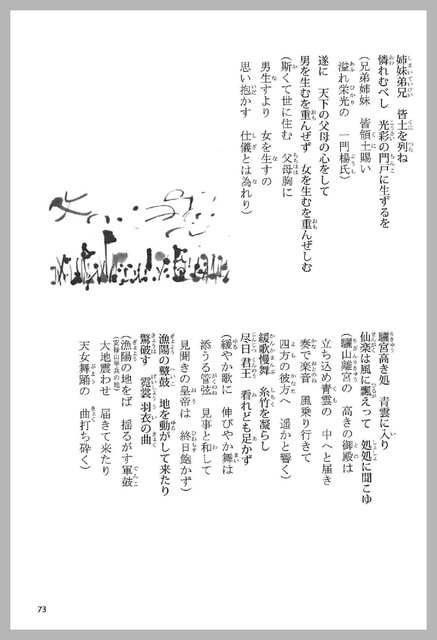 姉妹弟兄　皆土を列ね
憐れむべし　光彩の門戸に生ずるを
（兄弟姉妹　皆領土賜い
溢れ栄光の　一門楊氏）
遂に　天下の父母の心をして
男を生むを重んぜず　女を生むを重んぜしむ
（斯くて世に住む　父母胸に
男生すより　女を生すの
思い抱かす　仕儀とは為れり）
驪宮高き処　青雲に入り
仙楽は風に飄えって　処処に聞こゆ
（驪山離宮の　高きの御殿は
立ち込め青雲の　中へと届き
奏で楽音　風乗り行きて
四方の彼方へ　遥かと響く）
緩歌慢舞　糸竹を凝らし
尽日君王　看れども足かず
（緩やか歌に　伸びやか舞は
添うる管弦　見事と和して
見聞きの皇帝は　終日飽かず）
漁陽の鼙鼓　地を動がして来たり
驚破す　霓裳羽衣の曲
（漁陽の地をば　揺るがす軍鼓
（安禄山挙兵の地）
大地震わせ　届きて来たり
天女舞踊の　曲打ち砕く）
73